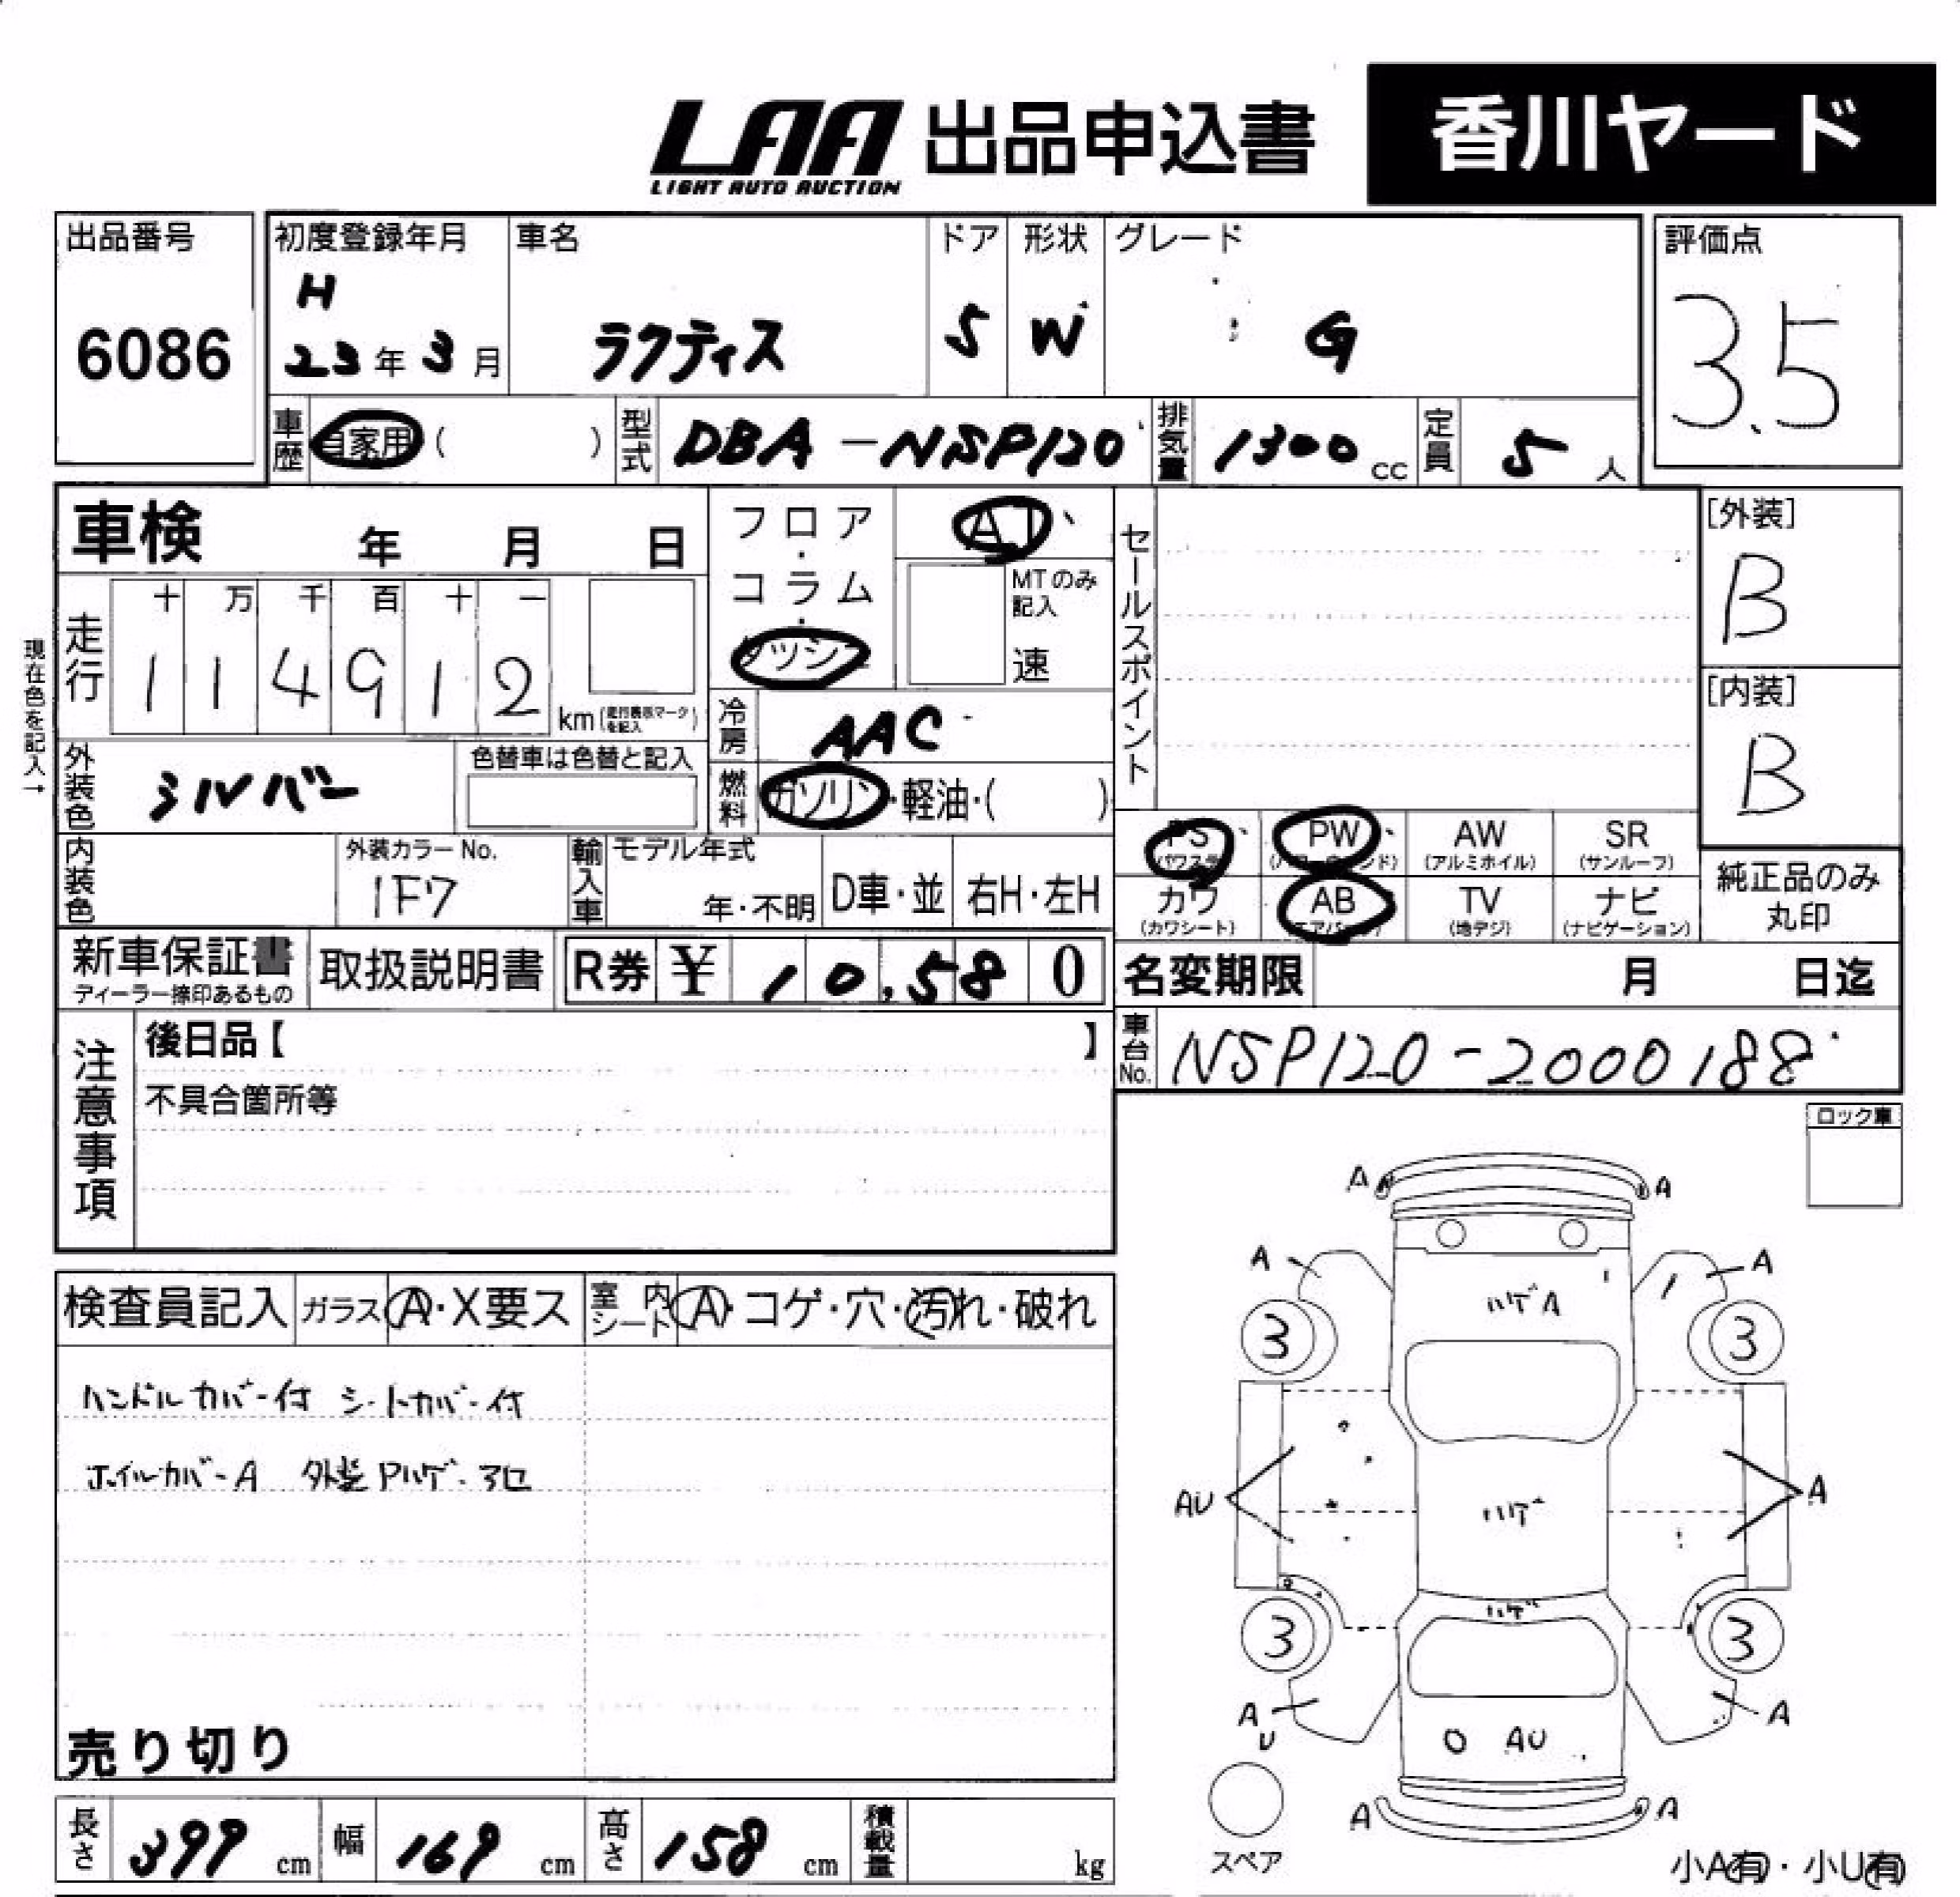 LAA 出品申込書 香川ヤード
LIGHT AUTO AUCTION
出品番号 初度登録年月 車名 ドア 形状 グレード 評価点
6086 H 23年 3月 ラクティス 5 W G 3.5
車歴 自家用 ( ) 型式 DBA-NSP120 排気量 1300 cc 定員 5 人
車検 年 月 日 フロア・コラム・ダッシュ AT
MTのみ記入 速
現在色を記入→
走行 十 万 千 百 十 一
1 1 4 9 1 2 km (走行表示マークを記入)
冷房 AAC
外装色 シルバー 色替車は色替と記入
燃料 ガソリン・軽油・( )
セールスポイント
[外装]
B
[内装]
B
内装色 外装カラーNo. 1F7 輸入車 モデル年式 年・不明 D車・並 右H・左H
PS (パワステ) PW (パワーウィンド) AW (アルミホイル) SR (サンルーフ)
カワ (カワシート) AB (エアバック) TV (地デジ) ナビ (ナビゲーション)
純正品のみ
丸印
新車保証書 取扱説明書 R券 ¥ 10,580
ディーラー捺印あるもの
名変期限 月 日迄
車台No. NSP120-2000188
注意事項
後日品【 】
不具合箇所等
ロック車
検査員記入 ガラス A・X要ス 室内シート A・コゲ・穴・汚れ・破れ
ハンドルカバー付 シートカバー付
ホイルカバーA 外装Pハゲ・ヲロ
売り切り
A A
A A
ハゲA
3 3
AU A
ハゲ
ハゲ
3 3
A A
U
O AU
A A
スペア
小A有・小U有
長さ 399 cm 幅 169 cm 高さ 158 cm 積載量 kg